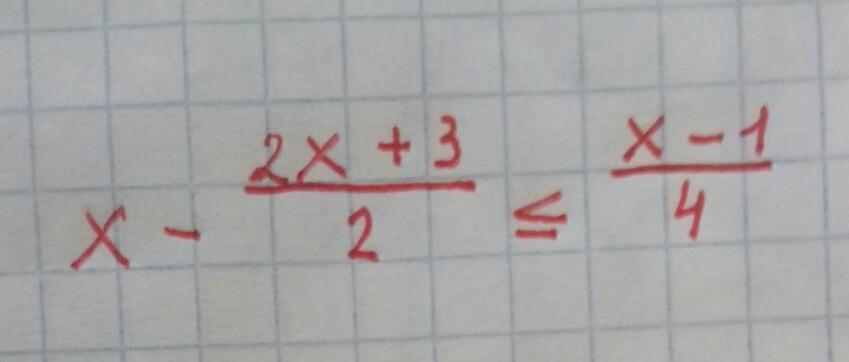 x - \frac{2x + 3}{2} ≤ \frac{x - 1}{4}